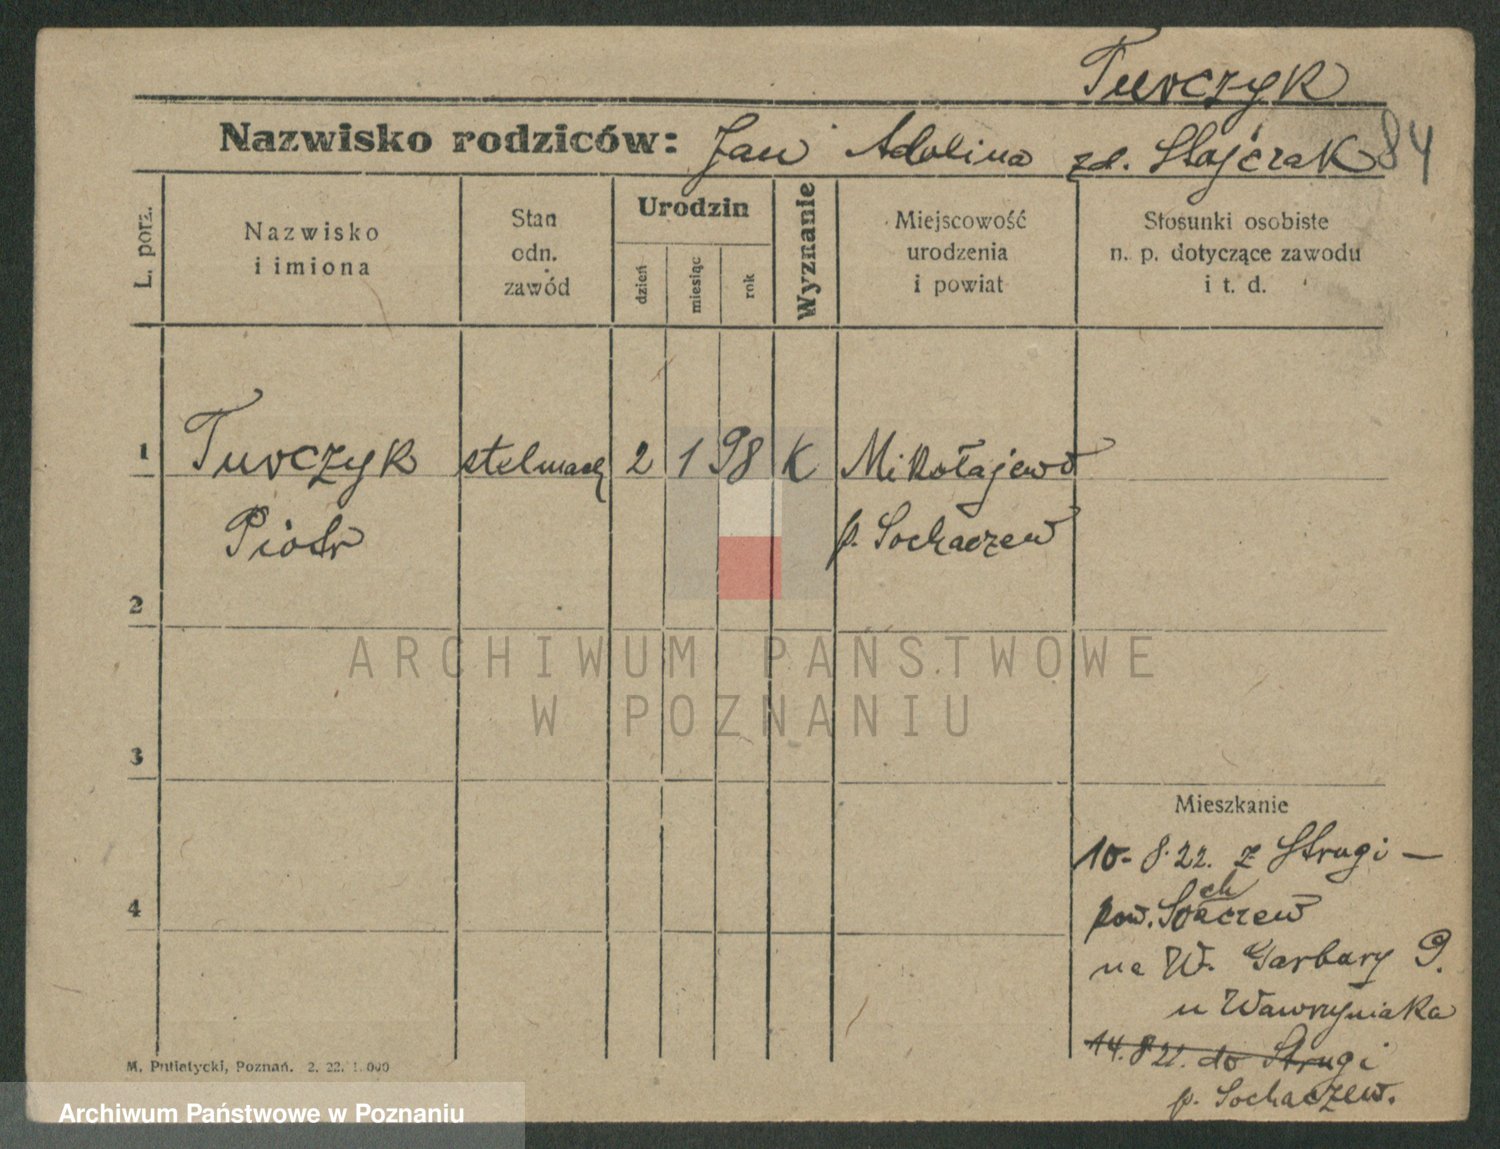 Turczyk
84
Nazwisko rodziców: Jan Adolina zd. Stajczak
L. porz.
Nazwisko
i imiona
Stan
odn.
zawód
Urodzin
dzień
miesiąc
rok
Wyznanie
Miejscowość
urodzenia
i powiat
Stosunki osobiste
n. p. dotyczące zawodu
i t. d.
1
Turczyk stelmach 2 1 98 K Mikołajew
Piotr p. Sochaczew
2
ARCHIWUM PAŃSTWOWE
W POZNANIU
3
Mieszkanie
10-8.22. z Strugi —
4
pow. Sochaczew
na W. Garbary 9.
u Wawrzyniaka
14.8 22. do Strugi
p. Sochaczew.
M. Putiatycki, Poznań. 2. 22. 1.000
Archiwum Państwowe w Poznaniu